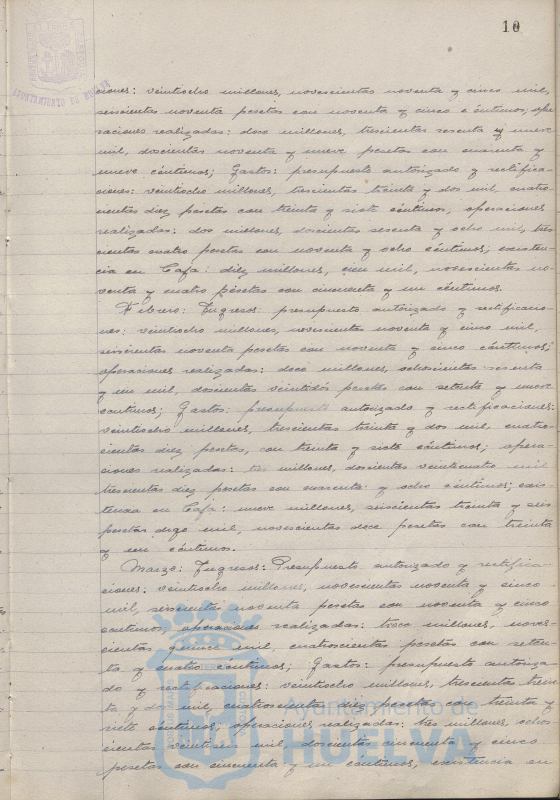 10
AYUNTAMIENTO DE HUELVA
ciones: veintiocho millones, novescientas noventa y cinco mil,
seiscientas noventa pesetas con noventa y cinco céntimos; ope-
raciones realizadas: doce millones, trescientas sesenta y nueve
mil, doscientas noventa y nueve pesetas con cuarenta y
nueve céntimos; Gastos: presupuesto autorizado y rectifica-
ciones: veintiocho millones, trescientas treinta y dos mil, cuatro-
cientas diez pesetas con treinta y siete céntimos, operaciones
realizadas: dos millones, doscientas sesenta y ocho mil, tres
cientas cuatro pesetas con noventa y ocho céntimos, existen-
cia en Caja: diez millones, cien mil, novescientas no-
venta y cuatro pesetas con cincuenta y un céntimos.
Febrero: Ingresos: presupuesto autorizado y rectificacio-
nes: veintiocho millones, novescientas noventa y cinco mil,
seiscientas noventa pesetas con noventa y cinco céntimos;
operaciones realizadas: doce millones, ochocientas sesenta
y un mil, doscientas veintidós pesetas con setenta y nueve
centimos; Gastos: presupuesto autorizado y rectificaciones:
veintiocho millones, trescientas treinta y dos mil, cuatro-
cientas diez pesetas, con treinta y siete céntimos; opera-
ciones realizadas: tres millones, doscientas veinticuatro mil
trescientas diez pesetas con cuarenta y ocho céntimos; exis-
tencia en Caja: nueve millones, seiscientas treinta y seis
pesetas digo mil, novescientas doce pesetas con treinta
y un céntimos.
Marzo: Ingresos: Presupuesto autorizado y rectifica-
ciones: veintiocho millones, novescientas noventa y cinco
mil, seiscientas noventa pesetas con noventa y cinco
centimos, operaciones realizadas: trece millones, noves-
cientas quince mil, cuatroscientas pesetas con seten-
ta y cuatro céntimos; Gastos: presupuesto autoriza-
do y rectificaciones: veintiocho millones, trescientas trein
ta y dos mil, cuatroscientas diez pesetas con treinta y
siete céntimos; operaciones realizadas: tres millones, ochos-
cientas veintiseis mil, doscientas cincuenta y cinco
pesetas con cincuenta y un centimos, existencia en
Ayuntamiento de
HUELVA